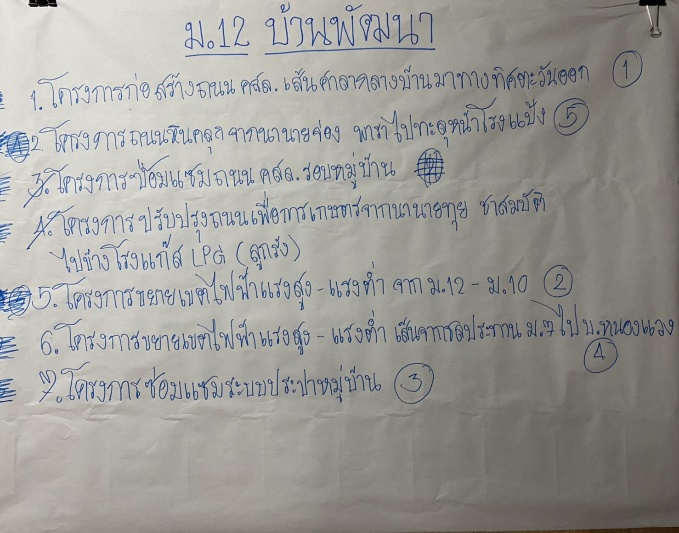 ม.12 บ้านพัฒนา
1. โครงการก่อสร้างถนน คสล. เส้นศาลากลางบ้านมาทางทิศตะวันออก ①
2. โครงการถนนหินคลุก จากนานายจ่อง พาราไปทะลุหน้าโรงแป้ง ⑤
3. โครงการซ่อมแซมถนน คสล. รอบหมู่บ้าน
4. โครงการปรับปรุงถนนเพื่อการเกษตรจากนานายทุย ชาสมบัติ
ไปข้างโรงแก๊ส LPG (ลูกรัง)
5. โครงการขยายเขตไฟฟ้าแรงสูง - แรงต่ำ จาก ม.12 - ม.10 ②
6. โครงการขยายเขตไฟฟ้าแรงสูง - แรงต่ำ เส้นจากชลประทาน ม.7 ไป บ.หนองแวง ④
7. โครงการซ่อมแซมระบบประปาหมู่บ้าน ③